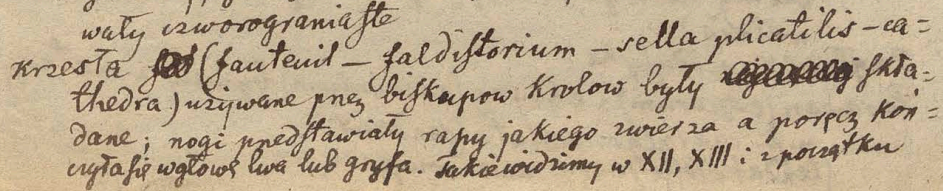 wały czworograniaste
Krzesła (fauteuil – faldistorium – sella plicatilis – ca=
thedra) używane przez biskupow Krolow były skła=
dane; nogi przedstawiały łapy jakiego zwierza a poręcz koń=
czyła się w głowę lwa lub gryfa. Takie widzimy w XII, XIII i z początku